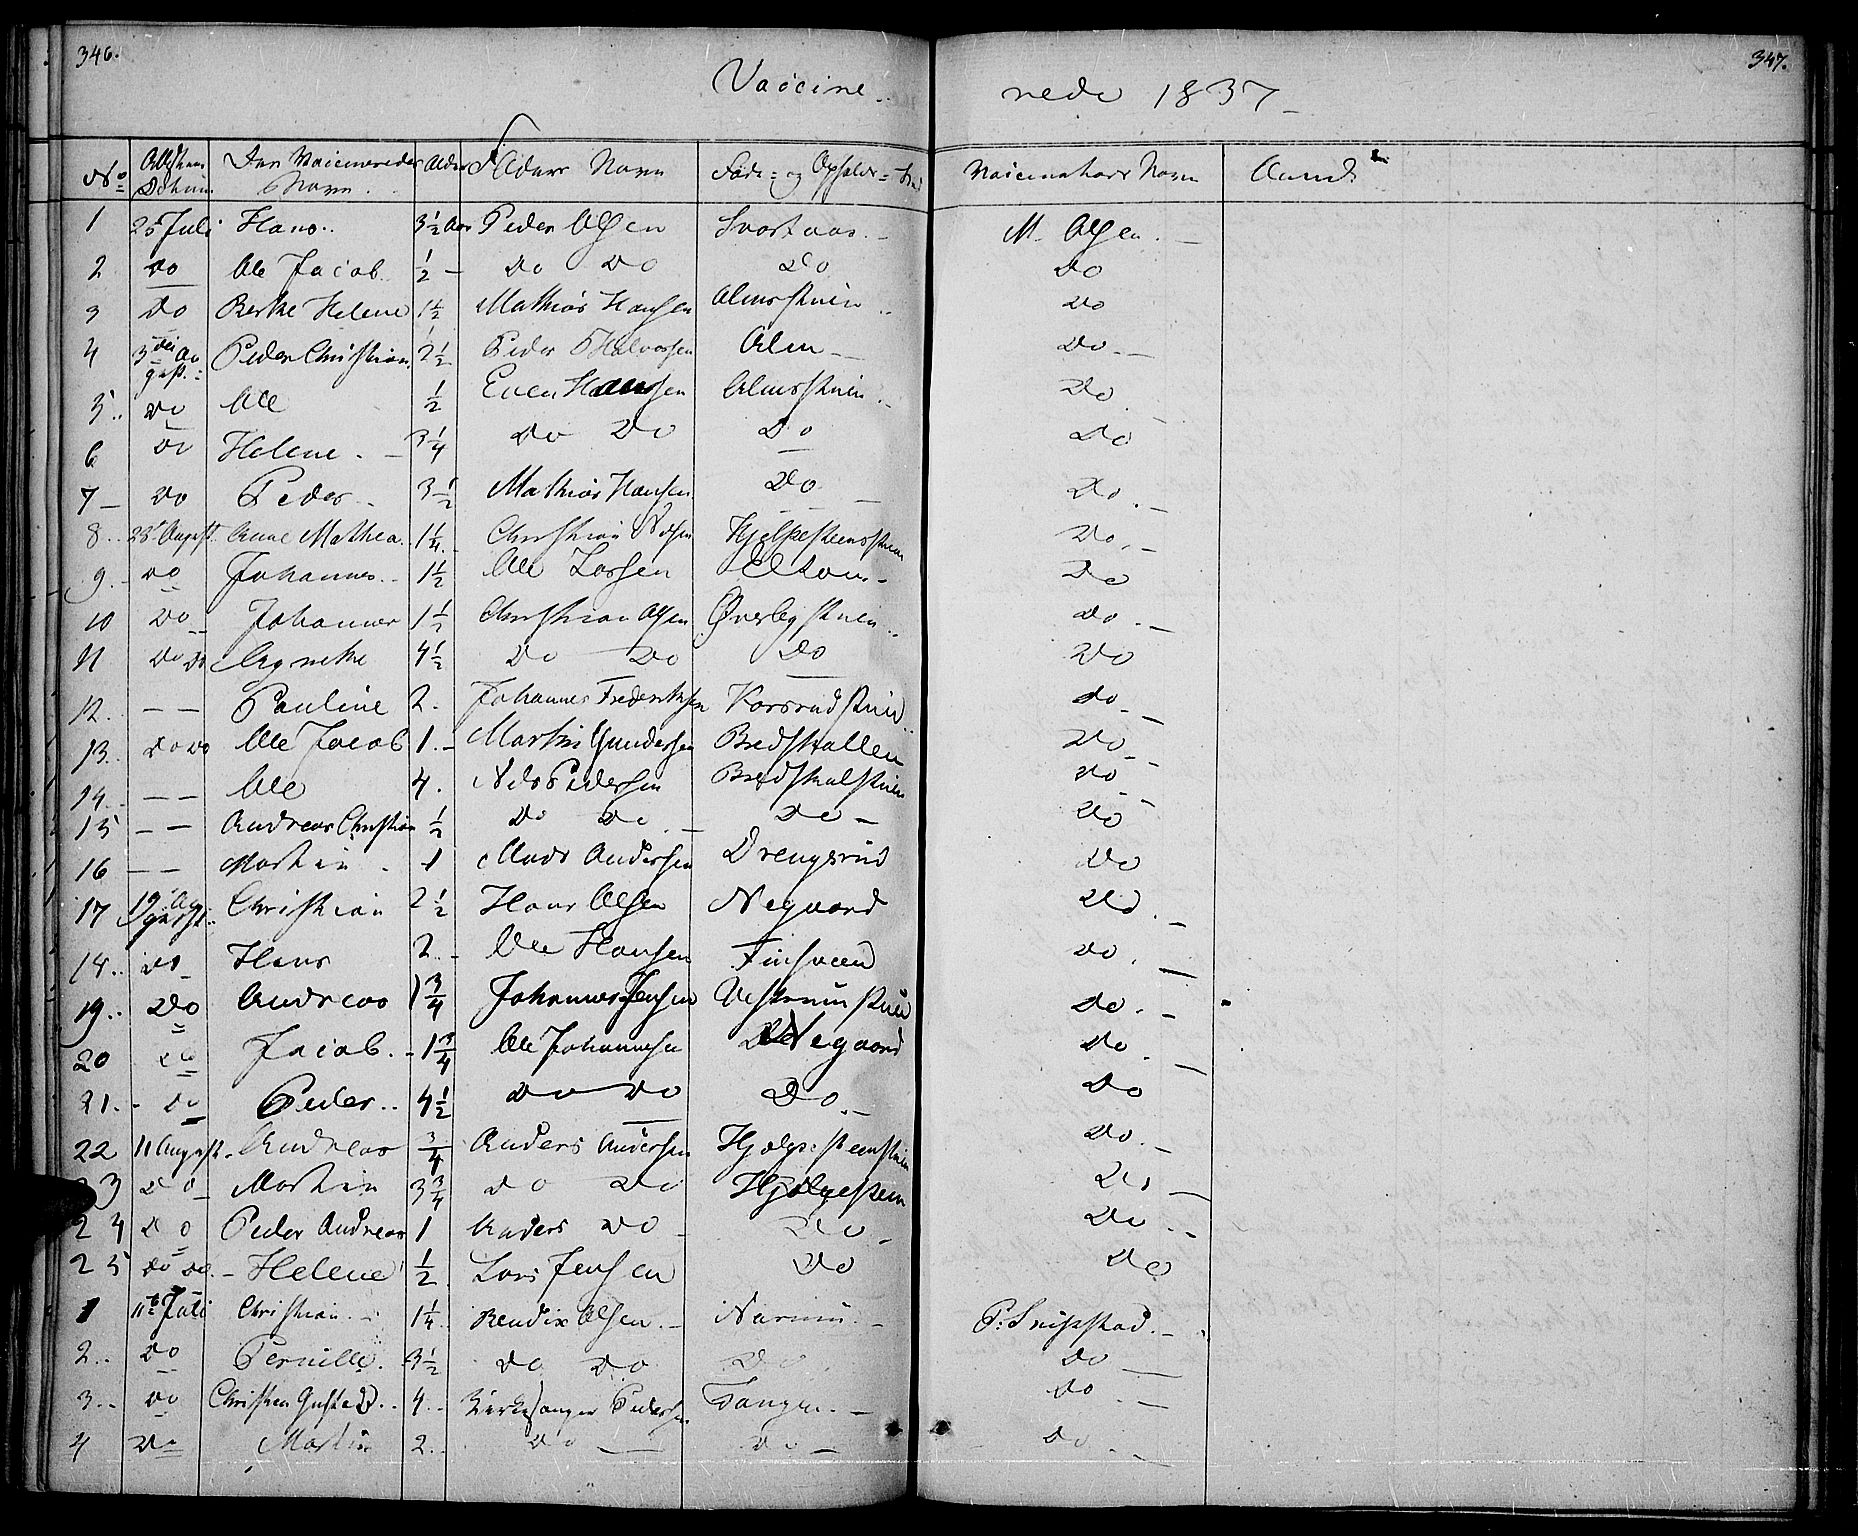 346.
347.
Vaccine- rede 1837
No Attestens Datum Den Vaccineredes Navn. Alder Faders Navn Føde- og Opholds-Sted Vaccinateurs Navn Anm:
1 25 Juli Hans.. 3½ Aar Peder Olsen Svartaas. M. Olsen.
2 Do Ole Jacob ½ Do Do Do Do
3 Do Berthe Helene 1½ Mathias Hansen Almsstuen Do
4 3die August Peder Christian 2½ Peder Halvorsen Alm Do
5.. Do Ole ½ Even Hansen Almsstuen Do
6 Do Helene. 3¼ Do Do Do Do
7 Do Peder 3½ Mathias Hansen Do Do
8.. 23 August Anne Mathea. 1¼ Christian Nilsen Hjelpesteensstuen Do
9. Do Johannes. 1½ Ole Larsen Do
10 Do Johannes 1½ Christian Olsen Øverbystuen Do
11 Do Do Agnethe 4½ Do Do Do Do
12. — — Pauline 2. Johannes Frederiksen Korsrudstuen Do
13. Do Do Ole Jacob 1. Martin Gundersen Bredskallen Do
14. — — Ole 4. Nels Pedersen Bredskalstuen Do
15 — — Andreas Christian ½ Do Do Do Do
16 — — Martin 1 Mads Andersen Drengsrud Do
17 19 August Christian 2½ Hans Olsen Negaard Do
18.. Do Hans 2 Ole Hansen Finsveen Do
19.. Do Andreas 1¾ Johannes Jensen Do
20 Do Jacob. 1¾ Ole Johannesen Negaard Do
21. Do Peder.. 4½ Do Do Do Do
22 11 August. Andreas ¾ Anders Andersen Hjelpesteenstuen Do
23 Do Martin 3¾ Do Do Hjelpesteen Do
24 Do Peder Andreas 1 Anders Do Do Do
25 Do Do Helene ½ Lars Jensen Do Do
1 11te Juli Christian. 1¼ Bendix Olsen. P: Snipstad.
2.. Do Pernille. 3½ Do Do Do Do
3.. Do Christian Gustav.. 4.. Kirkesanger Pedersen Tangen. Do
4 Do Martin 2.. Do Do Do